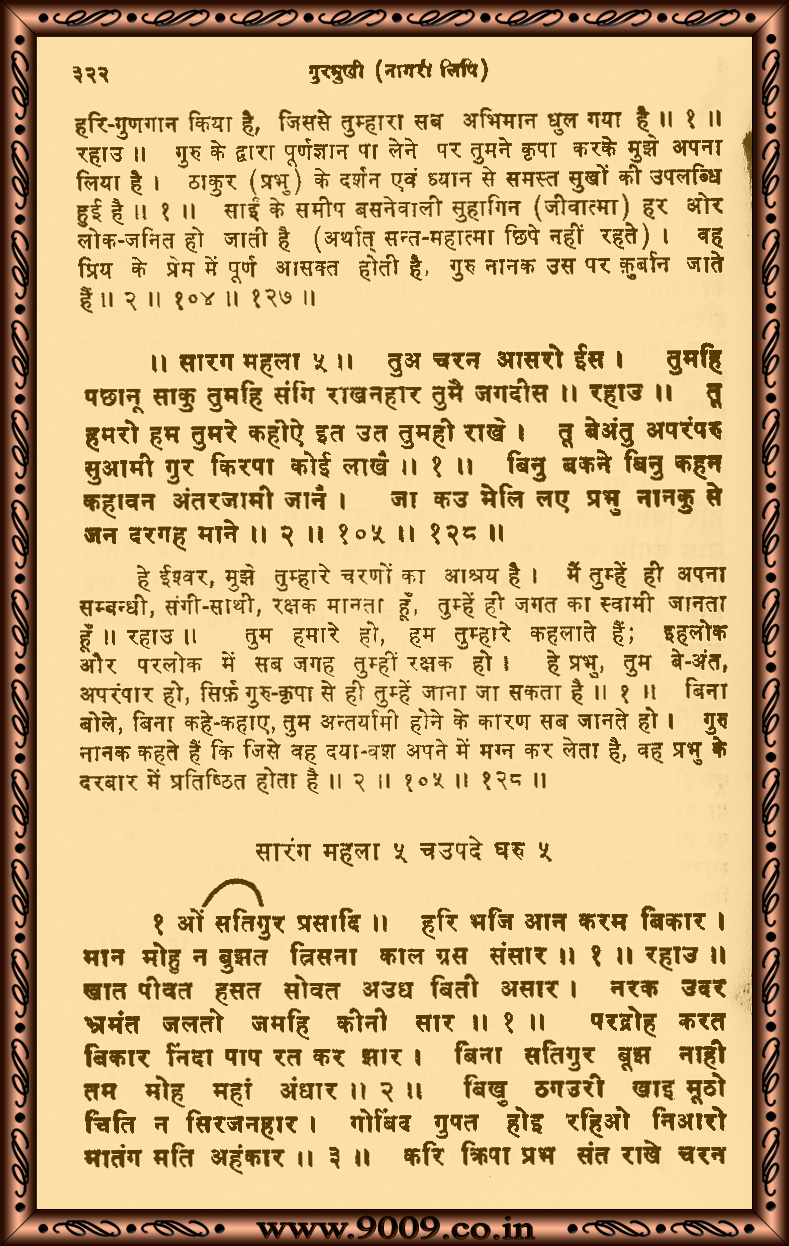 ३२२ गुरमुखी (नागरी लिपि)
हरि-गुणगान किया है, जिससे तुम्हारा सब अभिमान धुल गया है ॥ १ ॥
रहाउ ॥ गुरु के द्वारा पूर्णज्ञान पा लेने पर तुमने कृपा करके मुझे अपना
लिया है । ठाकुर (प्रभु) के दर्शन एवं ध्यान से समस्त सुखों की उपलब्धि
हुई है ॥ १ ॥ साईं के समीप बसनेवाली सुहागिन (जीवात्मा) हर ओर
लोक-जनित हो जाती है (अर्थात् सन्त-महात्मा छिपे नहीं रहते) । वह
प्रिय के प्रेम में पूर्ण आसक्त होती है, गुरु नानक उस पर क़ुर्बान जाते
हैं ॥ २ ॥ १०४ ॥ १२७ ॥
॥ सारग महला ५ ॥ तुअ चरन आसरो ईस । तुमहि
पछानू साकु तुमहि संगि राखनहार तुमै जगदीस ॥ रहाउ ॥ तू
हमरो हम तुमरे कहीऐ इत उत तुमही राखे । तू बेअंतु अपरंपरु
सुआमी गुर किरपा कोई लाखै ॥ १ ॥ बिनु बकने बिनु कहन
कहावन अंतरजामी जानै । जा कउ मेलि लए प्रभु नानकु से
जन दरगह माने ॥ २ ॥ १०५ ॥ १२८ ॥
हे ईश्वर, मुझे तुम्हारे चरणों का आश्रय है । मैं तुम्हें ही अपना
सम्बन्धी, संगी-साथी, रक्षक मानता हूँ, तुम्हें ही जगत का स्वामी जानता
हूँ ॥ रहाउ ॥ तुम हमारे हो, हम तुम्हारे कहलाते हैं; इहलोक
और परलोक में सब जगह तुम्हीं रक्षक हो । हे प्रभु, तुम बे-अंत,
अपरंपार हो, सिर्फ़ गुरु-कृपा से ही तुम्हें जाना जा सकता है ॥ १ ॥ बिना
बोले, बिना कहे-कहाए, तुम अन्तर्यामी होने के कारण सब जानते हो । गुरु
नानक कहते हैं कि जिसे वह दया-वश अपने में मग्न कर लेता है, वह प्रभु के
दरबार में प्रतिष्ठित होता है ॥ २ ॥ १०५ ॥ १२८ ॥
सारंग महला ५ चउपदे घरु ५
१ ओं सतिगुर प्रसादि ॥ हरि भजि आन करम बिकार ।
मान मोहु न बुझत त्रिसना काल ग्रस संसार ॥ १ ॥ रहाउ ॥
खात पीवत हसत सोवत अउध बिती असार । नरक उदर
भ्रमंत जलतो जमहि कीनी सार ॥ १ ॥ परद्रोह करत
बिकार निंदा पाप रत कर झार । बिना सतिगुर बूझ नाही
तम मोह महां अंधार ॥ २ ॥ बिखु ठगउरी खाइ मूठो
चिति न सिरजनहार । गोबिंद गुपत होइ रहिओ निआरो
मातंग मति अहंकार ॥ ३ ॥ करि क्रिपा प्रभ संत राखे चरन
www.9009.co.in